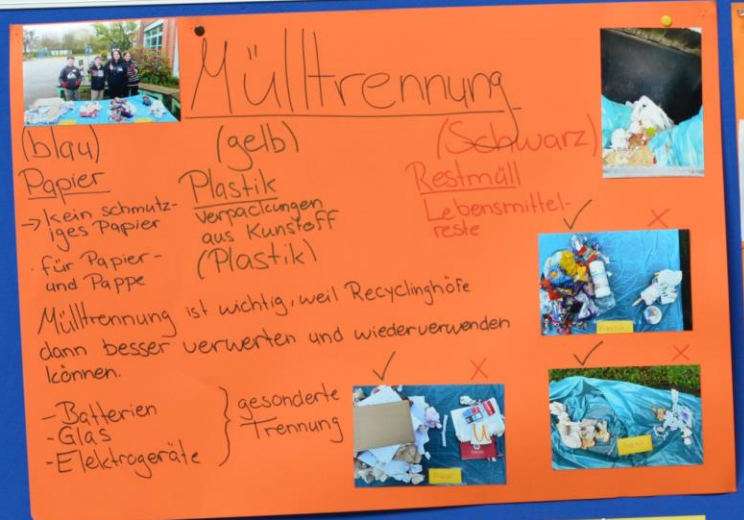 Mülltrennung
(blau)
Papier
-> kein schmutz-
iges Papier
· für Papier-
und Pappe
(gelb)
Plastik
verpackungen
aus Kunstoff
(Plastik)
(Schwarz)
Restmüll
Lebensmittel-
reste
Mülltrennung ist wichtig, weil Recyclinghöfe
dann besser verwerten und wiederverwenden
können.
- Batterien
- Glas
- Elektrogeräte
gesonderte
Trennung